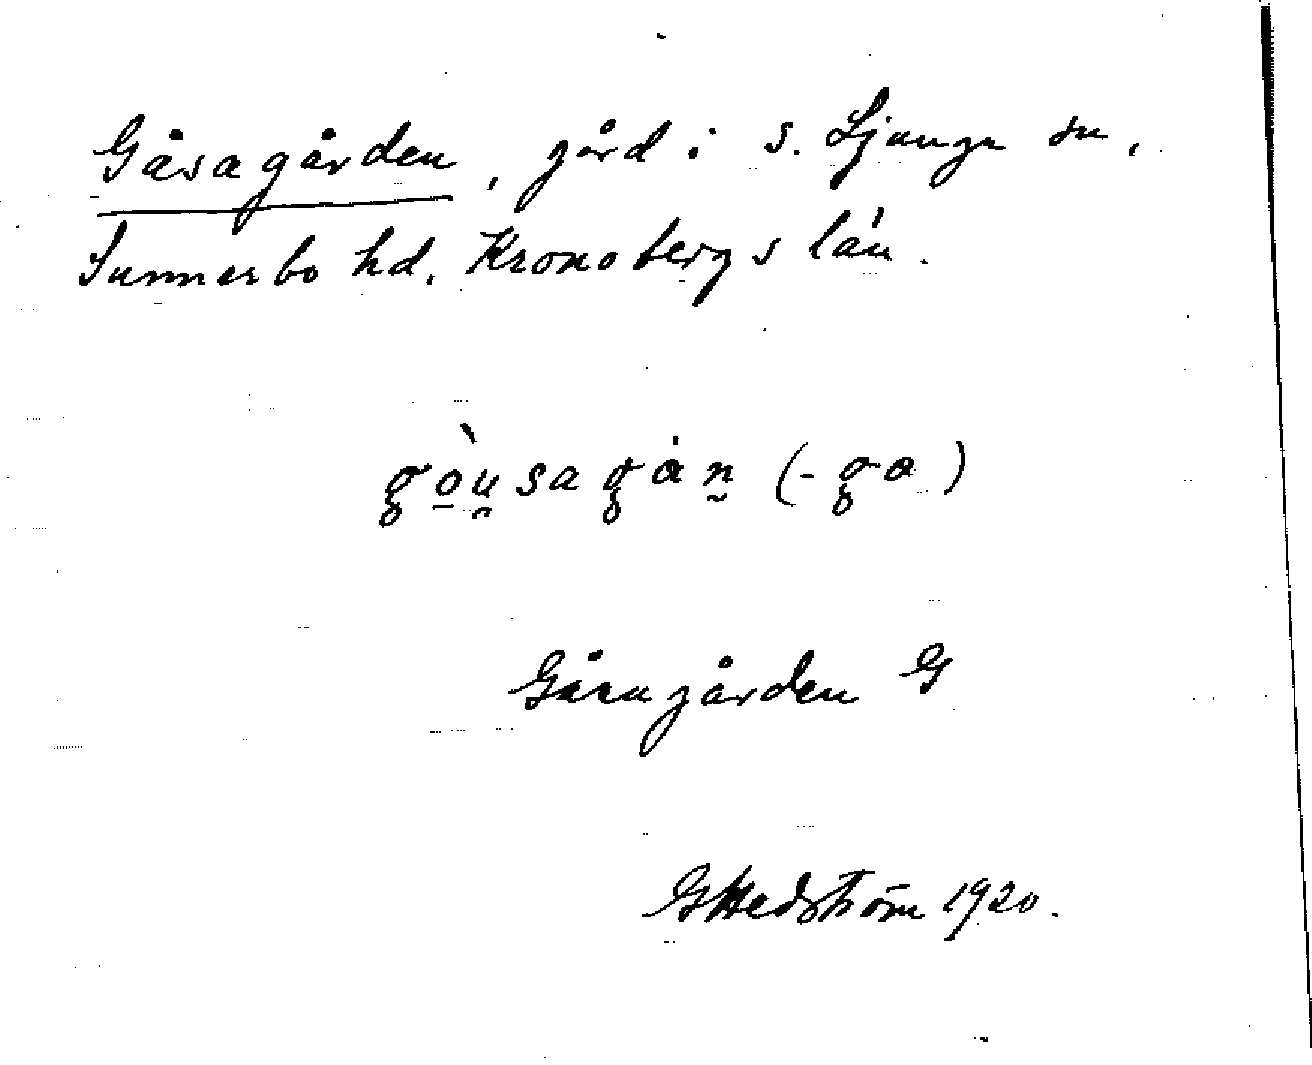 Gåsagården, gård i S. Ljunga sn,
Sunnerbo hd. Kronobergs län.
gòu̯sagån̥ (-ga)
Gåsagården G
GHedström 1920.